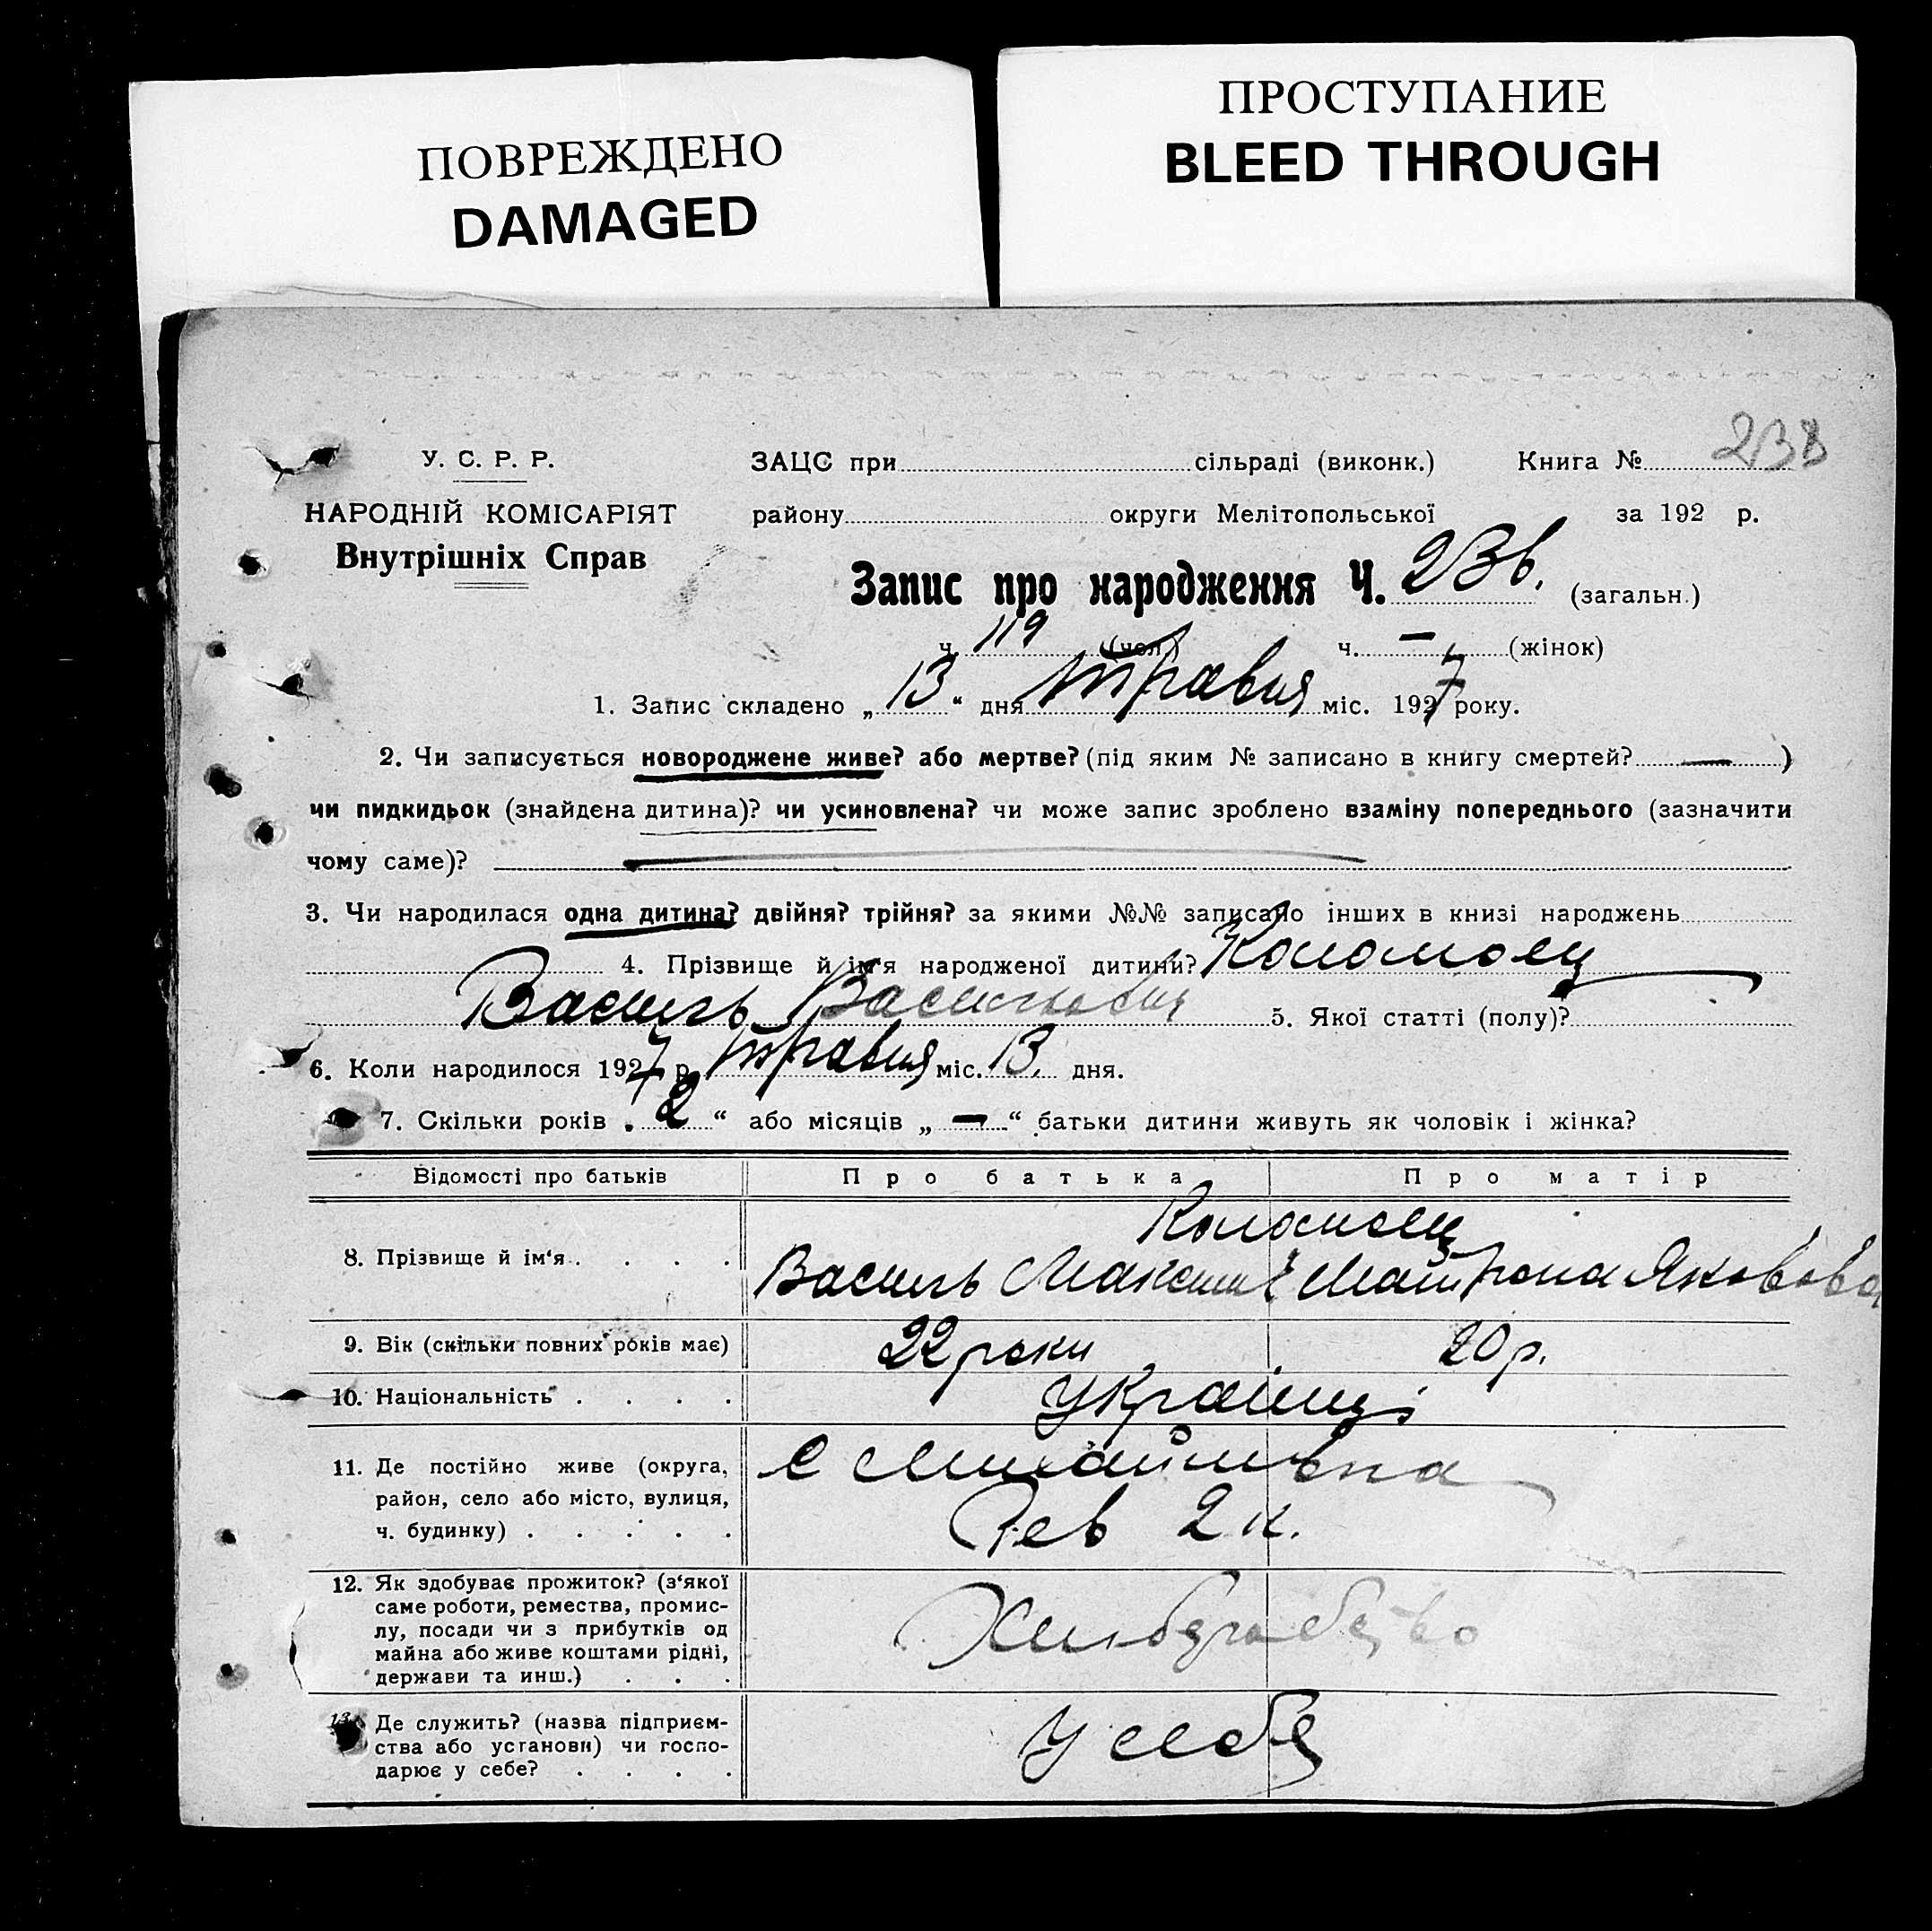 ПОВРЕЖДЕНО
DAMAGED
ПРОСТУПАНИЕ
BLEED THROUGH
238
У. С. Р. Р. ЗАЦС при сільраді (виконк.) Книга №
НАРОДНІЙ КОМІСАРІЯТ району округи Мелітопольської за 192 р.
Внутрішніх Справ
Запис про народження Ч. 236. (загальн.)
ч. 119 (чол) ч. — (жінок)
1. Запис складено „13“ дня травня міс. 1927 року.
2. Чи записується новороджене живе? або мертве? (під яким № записано в книгу смертей? — )
чи пидкидьок (знайдена дитина)? чи усиновлена? чи може запис зроблено взаміну попереднього (зазначити
чому саме)?
3. Чи народилася одна дитина? двійня? трійня? за якими №№ записано інших в книзі народжень
4. Прізвище й ім'я народженої дитини? Коломоец
Василь Васильович 5. Якої статті (полу)?
6. Коли народилося 1927 р. травня міс. 13. дня.
7. Скільки років „2“ або місяців „—“ батьки дитини живуть як чоловік і жінка?
Відомості про батьків Про батька Про матір
Коломоец
8. Прізвище й ім'я . . . . Василь Максим. Матрона Яковівна
9. Вік (скільки повних років має) 22 роки 20 р.
10. Національність . . . . Українці
11. Де постійно живе (округа, С Михайлівка
район, село або місто, вулиця, Рев 2 к.
ч. будинку) . . . . .
12. Як здобуває прожиток? (з'якої
саме роботи, ремества, промис-
лу, посади чи з прибутків од Хліборобство
майна або живе коштами рідні,
держави та инш.) . . .
13. Де служить? (назва підприєм-
ства або установи) чи госпо- У себе
дарює у себе? . . . .